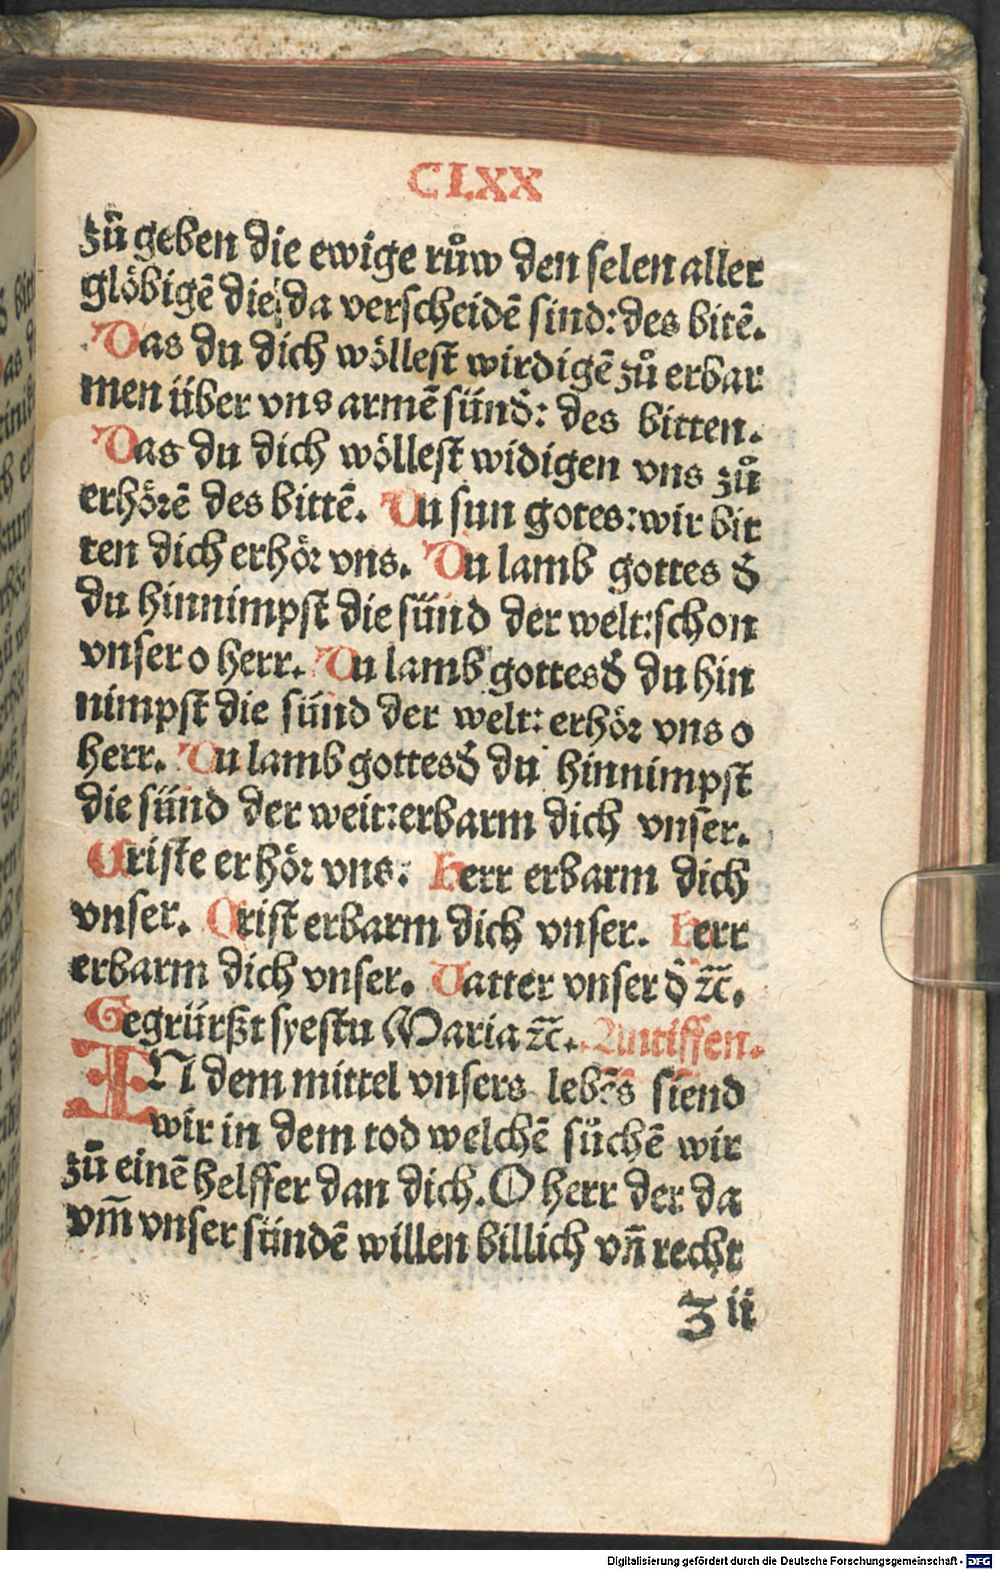 CLXX
zů geben die ewige růw den selen aller
glöbigē die da verscheidē sind: des bitē.
Das du dich wöllest wirdigē zů erbar
men über vns armē sünd̄: des bitten.
Das du dich wöllest widigen vns zů
erhörē des bittē. Du sun gotes: wir bit
ten dich erhör vns. Du lamb gottes d̄
du hinnimpst die sünd der welt: schon
vnser o herr. Du lamb gottes d̄ du hin
nimpst die sünd der welt: erhör vns o
herr. Du lamb gottes d̄ du hinnimpst
die sünd der welt: erbarm dich vnser.
Criste erhör vns. Herr erbarm dich
vnser. Crist erbarm dich vnser. Herr
erbarm dich vnser. Vatter vnser d̄ ꝛc̄.
Gegrürßt syestu Maria ꝛc̄. Antiffen.
IN dem mittel vnsers lebēs siend
wir in dem tod welchē süchē wir
zů einē helffer dan dich. O herr der da
vm̄ vnser sündē willen billich vn̄ recht
z ii
Digitalisierung gefördert durch die Deutsche Forschungsgemeinschaft - DFG